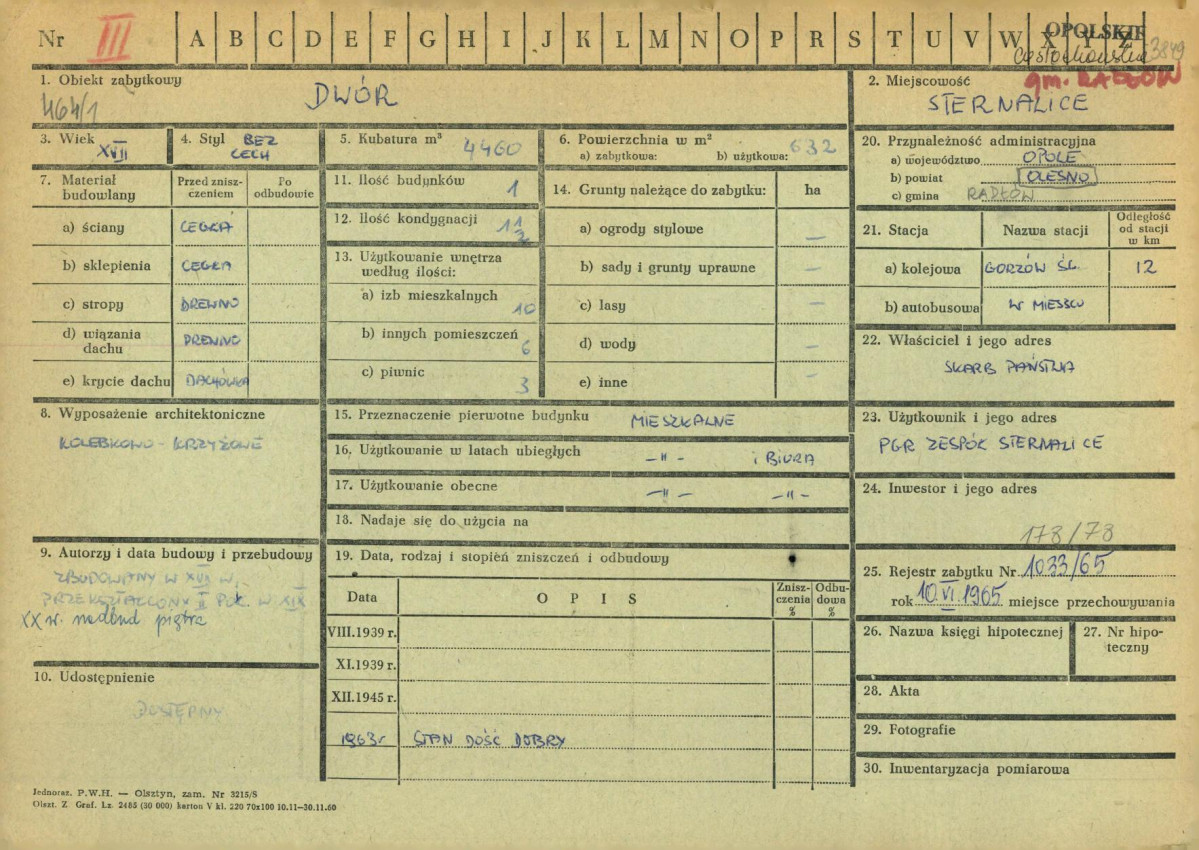 Nr III A B C D E F G H I J K L M N O P R S T U V W X Y Z
OPOLSKIE
Częstochowskie 3849
gm. RADŁÓW
1. Obiekt zabytkowy
464/1
DWÓR
2. Miejscowość
STERNALICE
3. Wiek
XVII
4. Styl BEZ
CECH
5. Kubatura m³
4460
6. Powierzchnia w m²
a) zabytkowa: b) użytkowa: 632
20. Przynależność administracyjna
a) województwo OPOLE
b) powiat OLESNO
c) gmina RADŁÓW
7. Materiał budowlany
Przed zniszczeniem
Po odbudowie
a) ściany CEGŁA
b) sklepienia CEGŁA
c) stropy DREWNO
d) wiązania dachu DREWNO
e) krycie dachu DACHÓWKA
11. Ilość budynków 1
12. Ilość kondygnacji 1 1/2
13. Użytkowanie wnętrza według ilości:
a) izb mieszkalnych 10
b) innych pomieszczeń 6
c) piwnic 3
14. Grunty należące do zabyku: ha
a) ogrody stylowe —
b) sady i grunty uprawne —
c) lasy —
d) wody —
e) inne —
21. Stacja Nazwa stacji Odległość od stacji w km
a) kolejowa GORZÓW ŚL. 12
b) autobusowa W MIEJSCU
22. Właściciel i jego adres
SKARB PAŃSTWA
8. Wyposażenie architektoniczne
KOLEBKOWO - KRZYŻOWE
15. Przeznaczenie pierwotne budynku MIESZKALNE
16. Użytkowanie w latach ubiegłych —"— i BIURA
17. Użytkowanie obecne —"— —"—
18. Nadaje się do użycia na
23. Użytkownik i jego adres
PGR ZESPÓŁ STERNALICE
24. Inwestor i jego adres
178/78
9. Autorzy i data budowy i przebudowy
ZBUDOWANY W XVII W.
PRZEKSZTAŁCONY II POŁ. W XIX
XX w. nadbud piętra
19. Data, rodzaj i stopień zniszczeń i odbudowy
Data OPIS Zniszczenia % Odbudowa %
VIII.1939 r.
XI.1939 r.
XII.1945 r.
1963r STAN DOŚĆ DOBRY
25. Rejestr zabytku Nr 1033/65
rok 10.VI.1965 miejsce przechowywania
26. Nazwa księgi hipotecznej
27. Nr hipoteczny
10. Udostępnienie
DOSTĘPNY
28. Akta
29. Fotografie
30. Inwentaryzacja pomiarowa
Jednoraz. P.W.H. — Olsztyn, zam. Nr 3215/S
Olszt. Z Graf. Lz. 2485 (30 000) karton V kl. 220 70x100 10.11—30.11.60